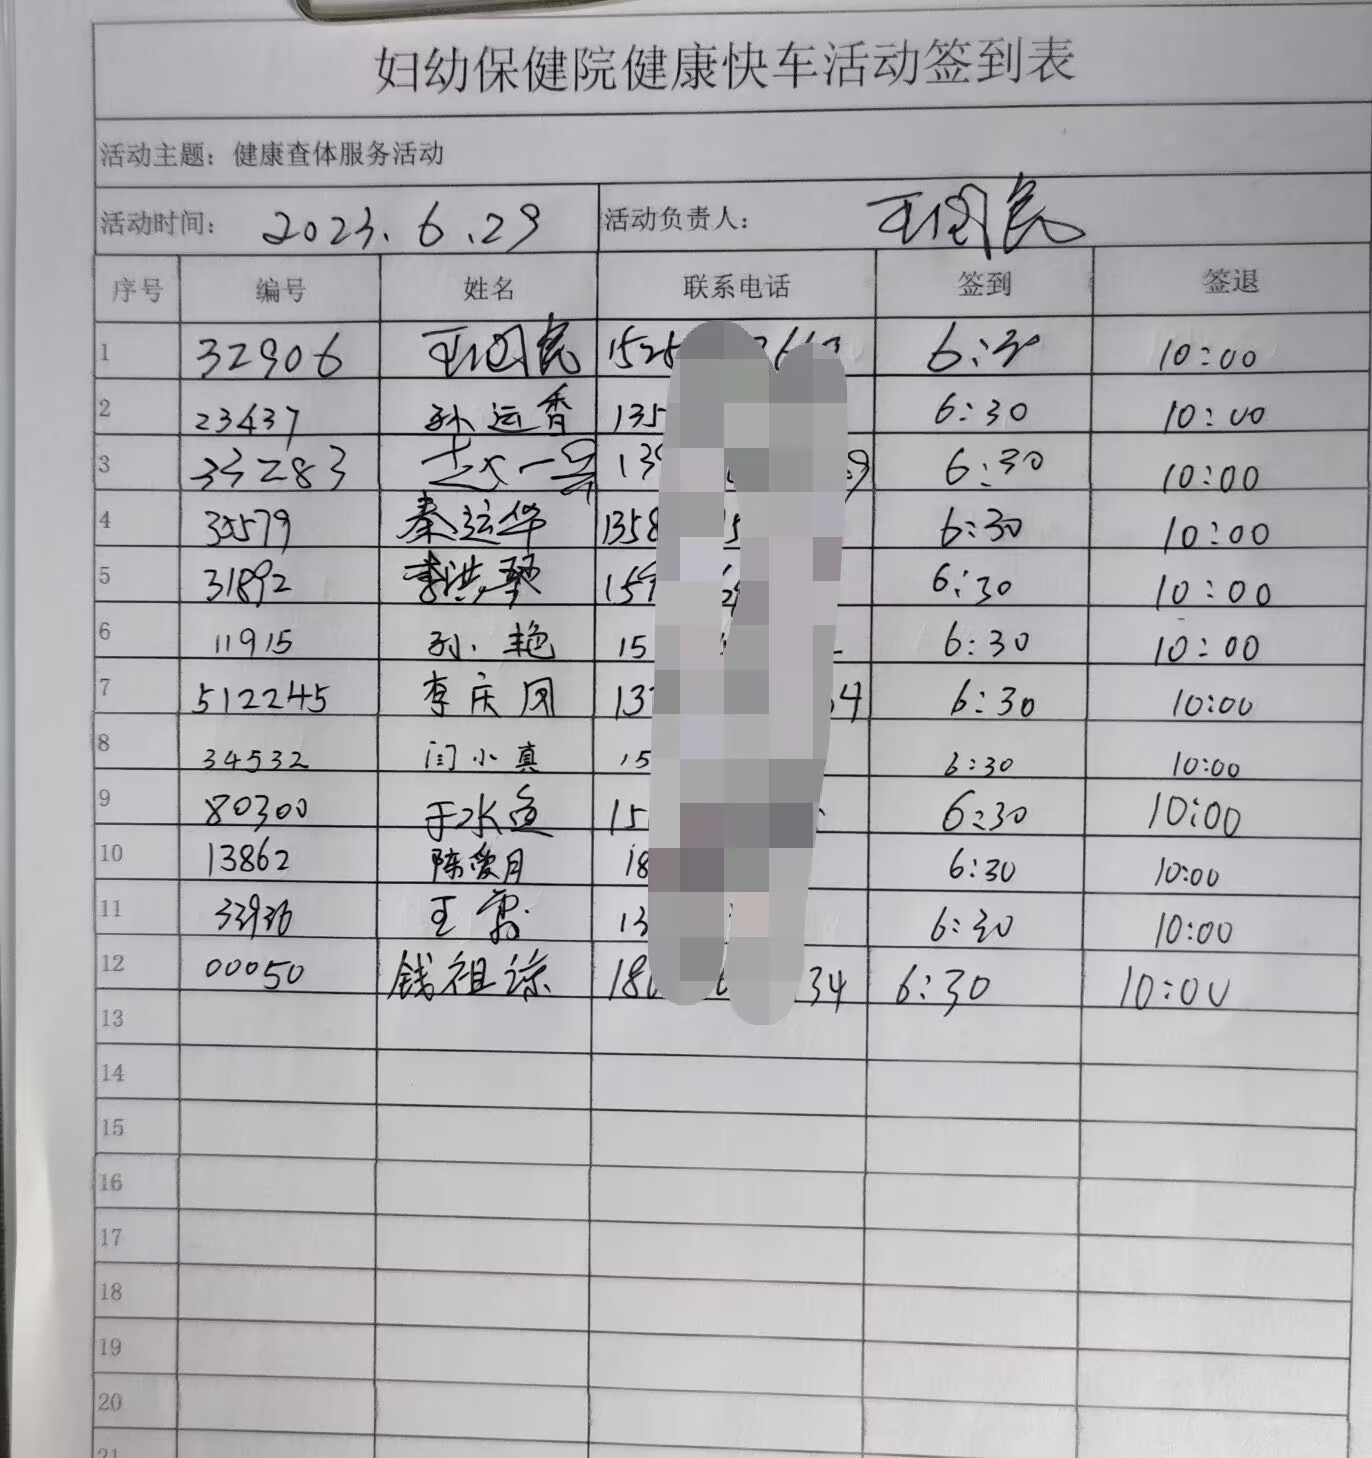 妇幼保健院健康快车活动签到表
活动主题：健康查体服务活动
活动时间： 2023.6.29 活动负责人： 王国民
序号 编号 姓名 联系电话 签到 签退
1 32906 王国民 152 6:30 10:00
2 23437 孙运香 135 6:30 10:00
3 33283 赵一 13 6:30 10:00
4 35579 秦运华 1358 6:30 10:00
5 31892 李洪 15 6:30 10:00
6 11915 孙艳 15 6:30 10:00
7 512245 李庆凤 13 4 6:30 10:00
8 34532 闫小真 15 6:30 10:00
9 80300 于水鱼 15 6:30 10:00
10 13862 陈爱月 18 6:30 10:00
11 33936 王 13 6:30 10:00
12 00050 钱祖 180 34 6:30 10:00
13
14
15
16
17
18
19
20
21